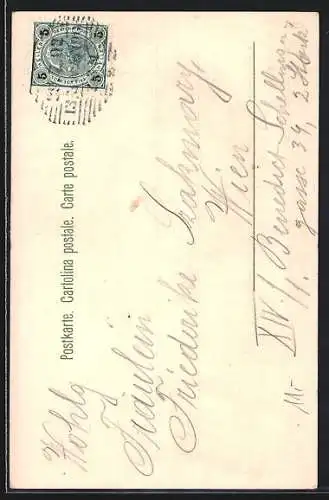 Postkarte. Cartolina postale. Carte postale.
Wohlg
Fräulein
Friederike
Wien
XIV/1. Benedict Schellinger
gasse 34, 2. Stock
5 5
5 5